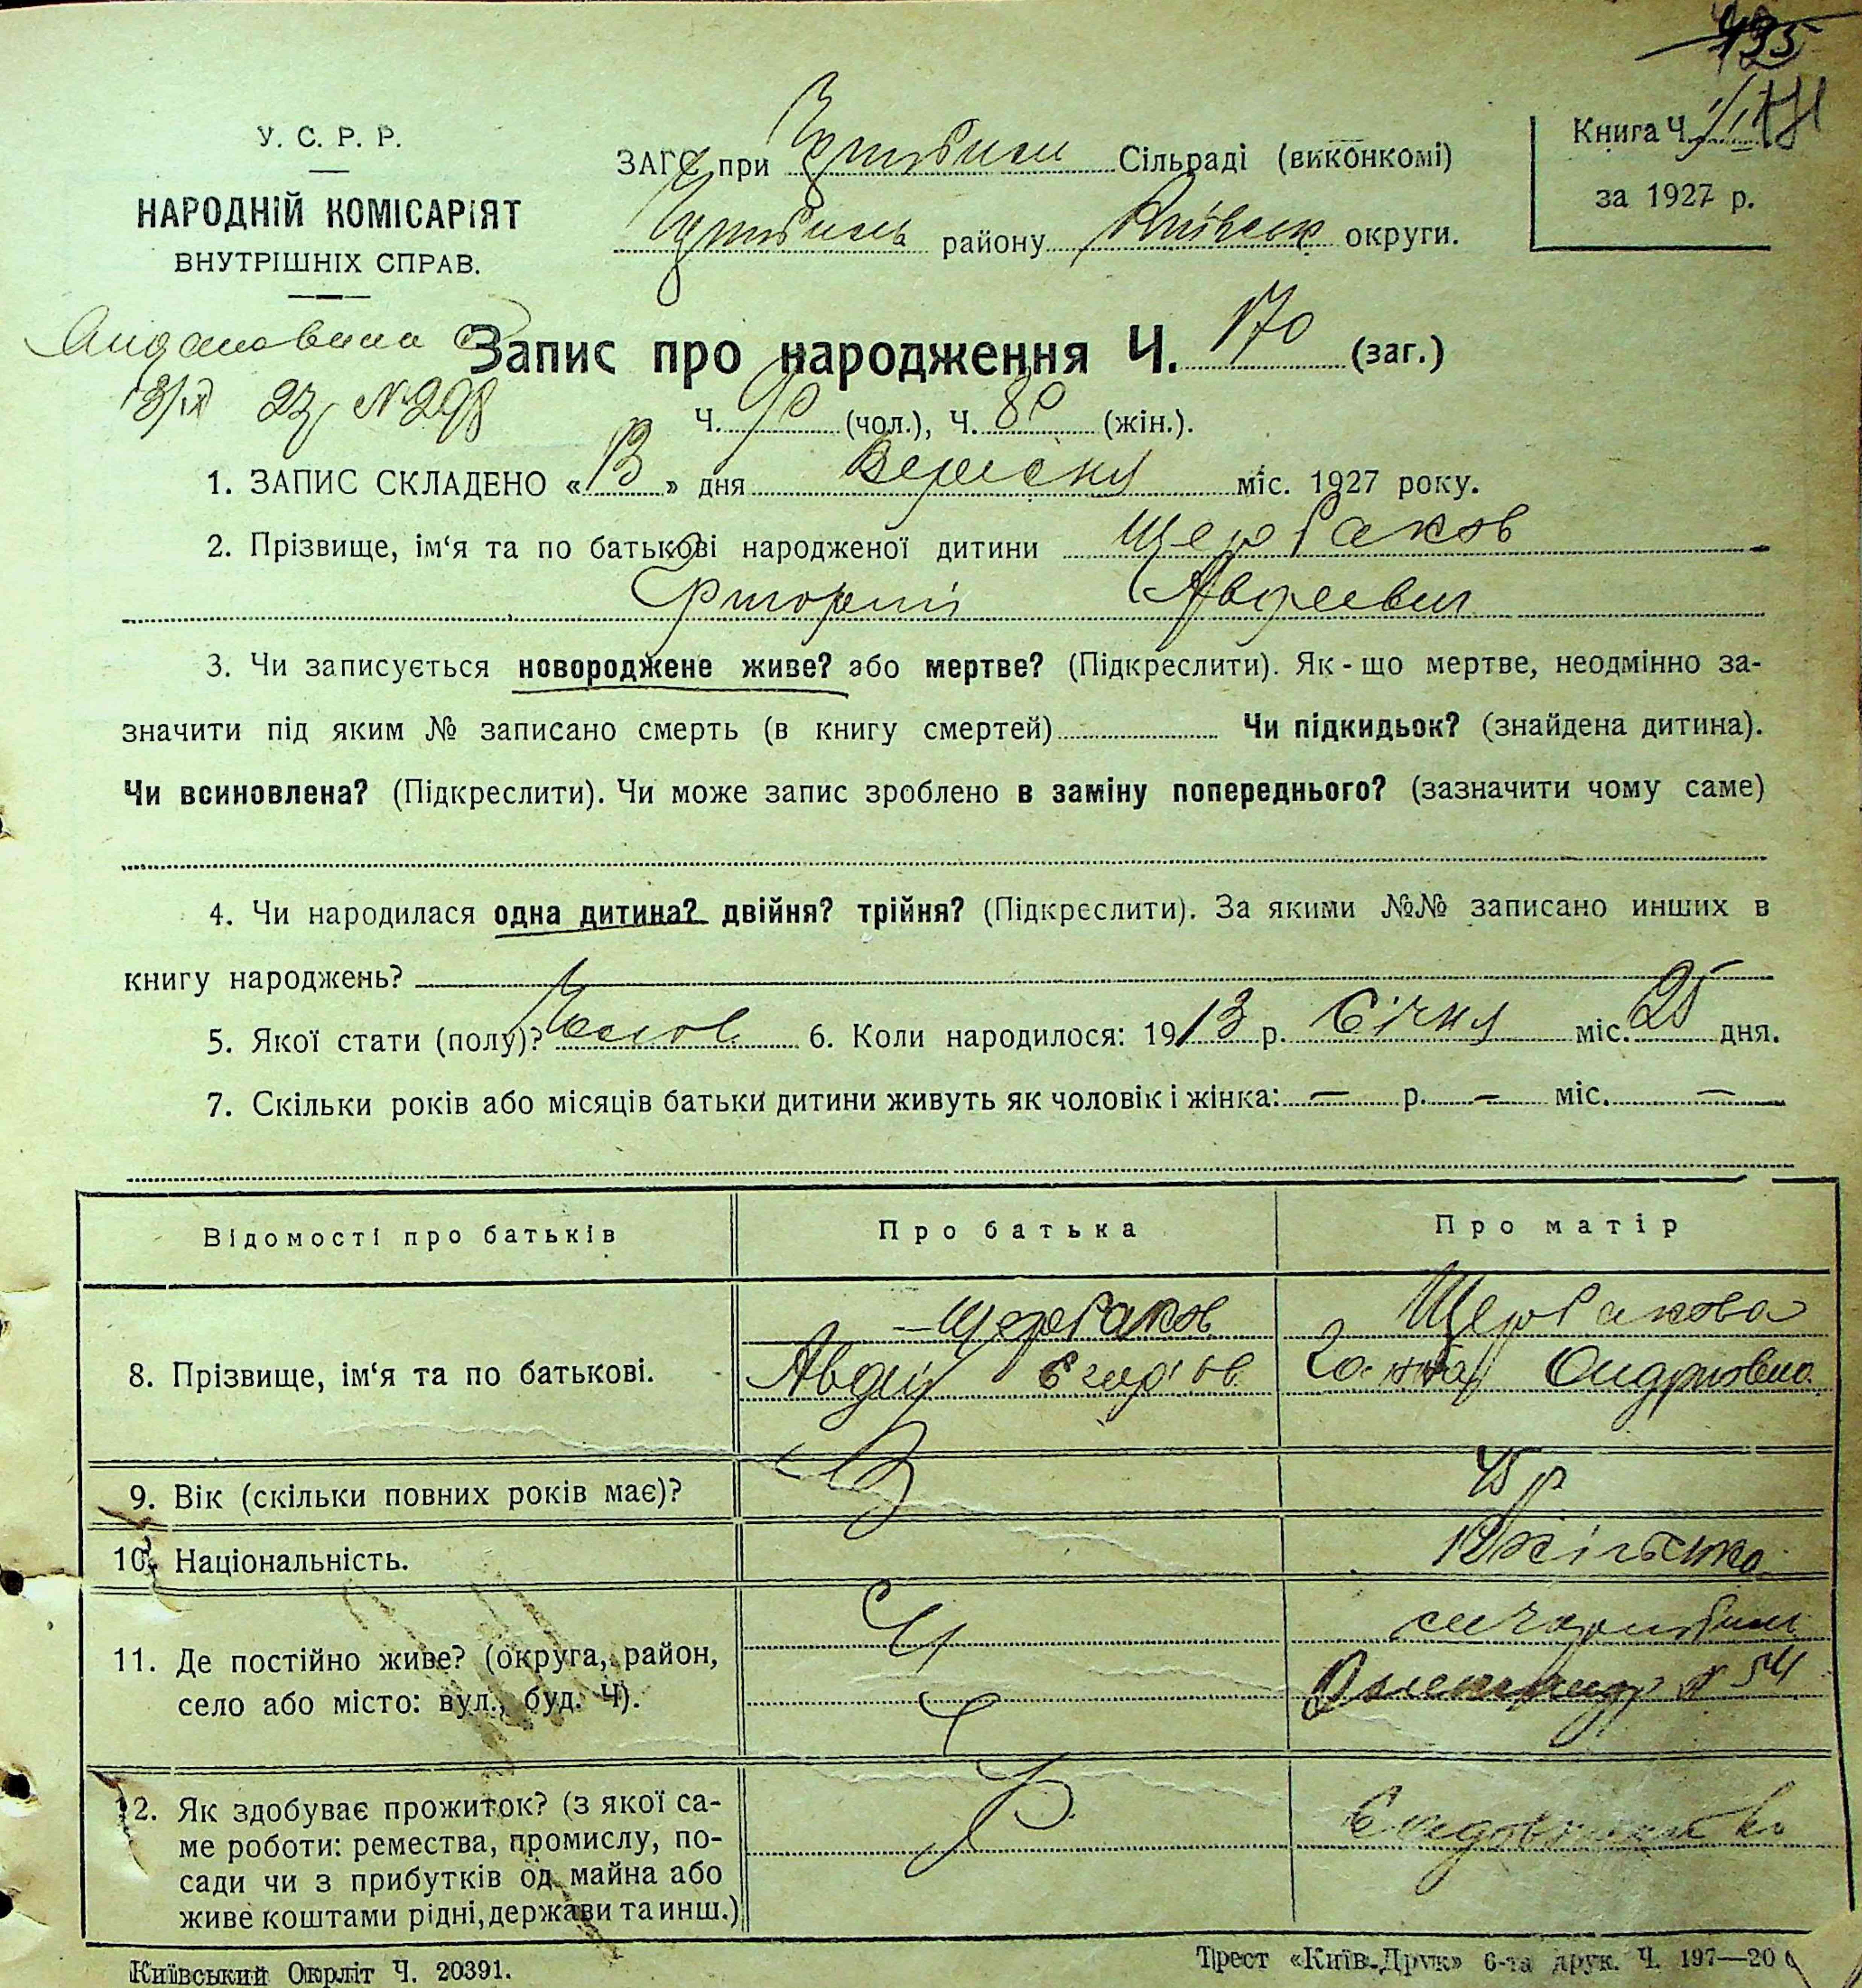 195
У. С. Р. Р.
НАРОДНІЙ КОМІСАРІЯТ
ВНУТРІШНІХ СПРАВ.
ЗАГС при Сільраді (виконкомі)
району Київськ округи.
Книга Ч.
за 1927 р.
Запис про народження Ч. 170 (заг.)
27 N 298
Ч. 90 (чол.), Ч. 80 (жін.).
1. ЗАПИС СКЛАДЕНО « 13 » дня Вересня міс. 1927 року.
2. Прізвище, ім‘я та по батькові народженої дитини Щербаков
Авдеевич
3. Чи записується новороджене живе? або мертве? (Підкреслити). Як - що мертве, неодмінно за-
значити під яким № записано смерть (в книгу смертей) Чи підкидьок? (знайдена дитина).
Чи всиновлена? (Підкреслити). Чи може запис зроблено в заміну попереднього? (зазначити чому саме)
4. Чи народилася одна дитина? двійня? трійня? (Підкреслити). За якими №№ записано инших в
книгу народжень?
5. Якої стати (полу)? Чолов 6. Коли народилося: 1913 р. Січня міс. 25 дня.
7. Скільки років або місяців батьки дитини живуть як чоловік і жінка: — р. — міс. —
Відомості про батьків Про батька Про матір
8. Прізвище, ім‘я та по батькові.
Щербаков Щербакова
Авдей Егоров
9. Вік (скільки повних років має)? 45 р
10. Національність.
11. Де постійно живе? (округа, район,
село або місто: вул., буд. Ч).
N 54
12. Як здобуває прожиток? (з якої са-
ме роботи: ремества, промислу, по-
сади чи з прибутків од майна або
живе коштами рідні, держави та инш.)
Київський Окрліт Ч. 20391.
Трест «Київ-Друк» 6-та друк. Ч. 197—20